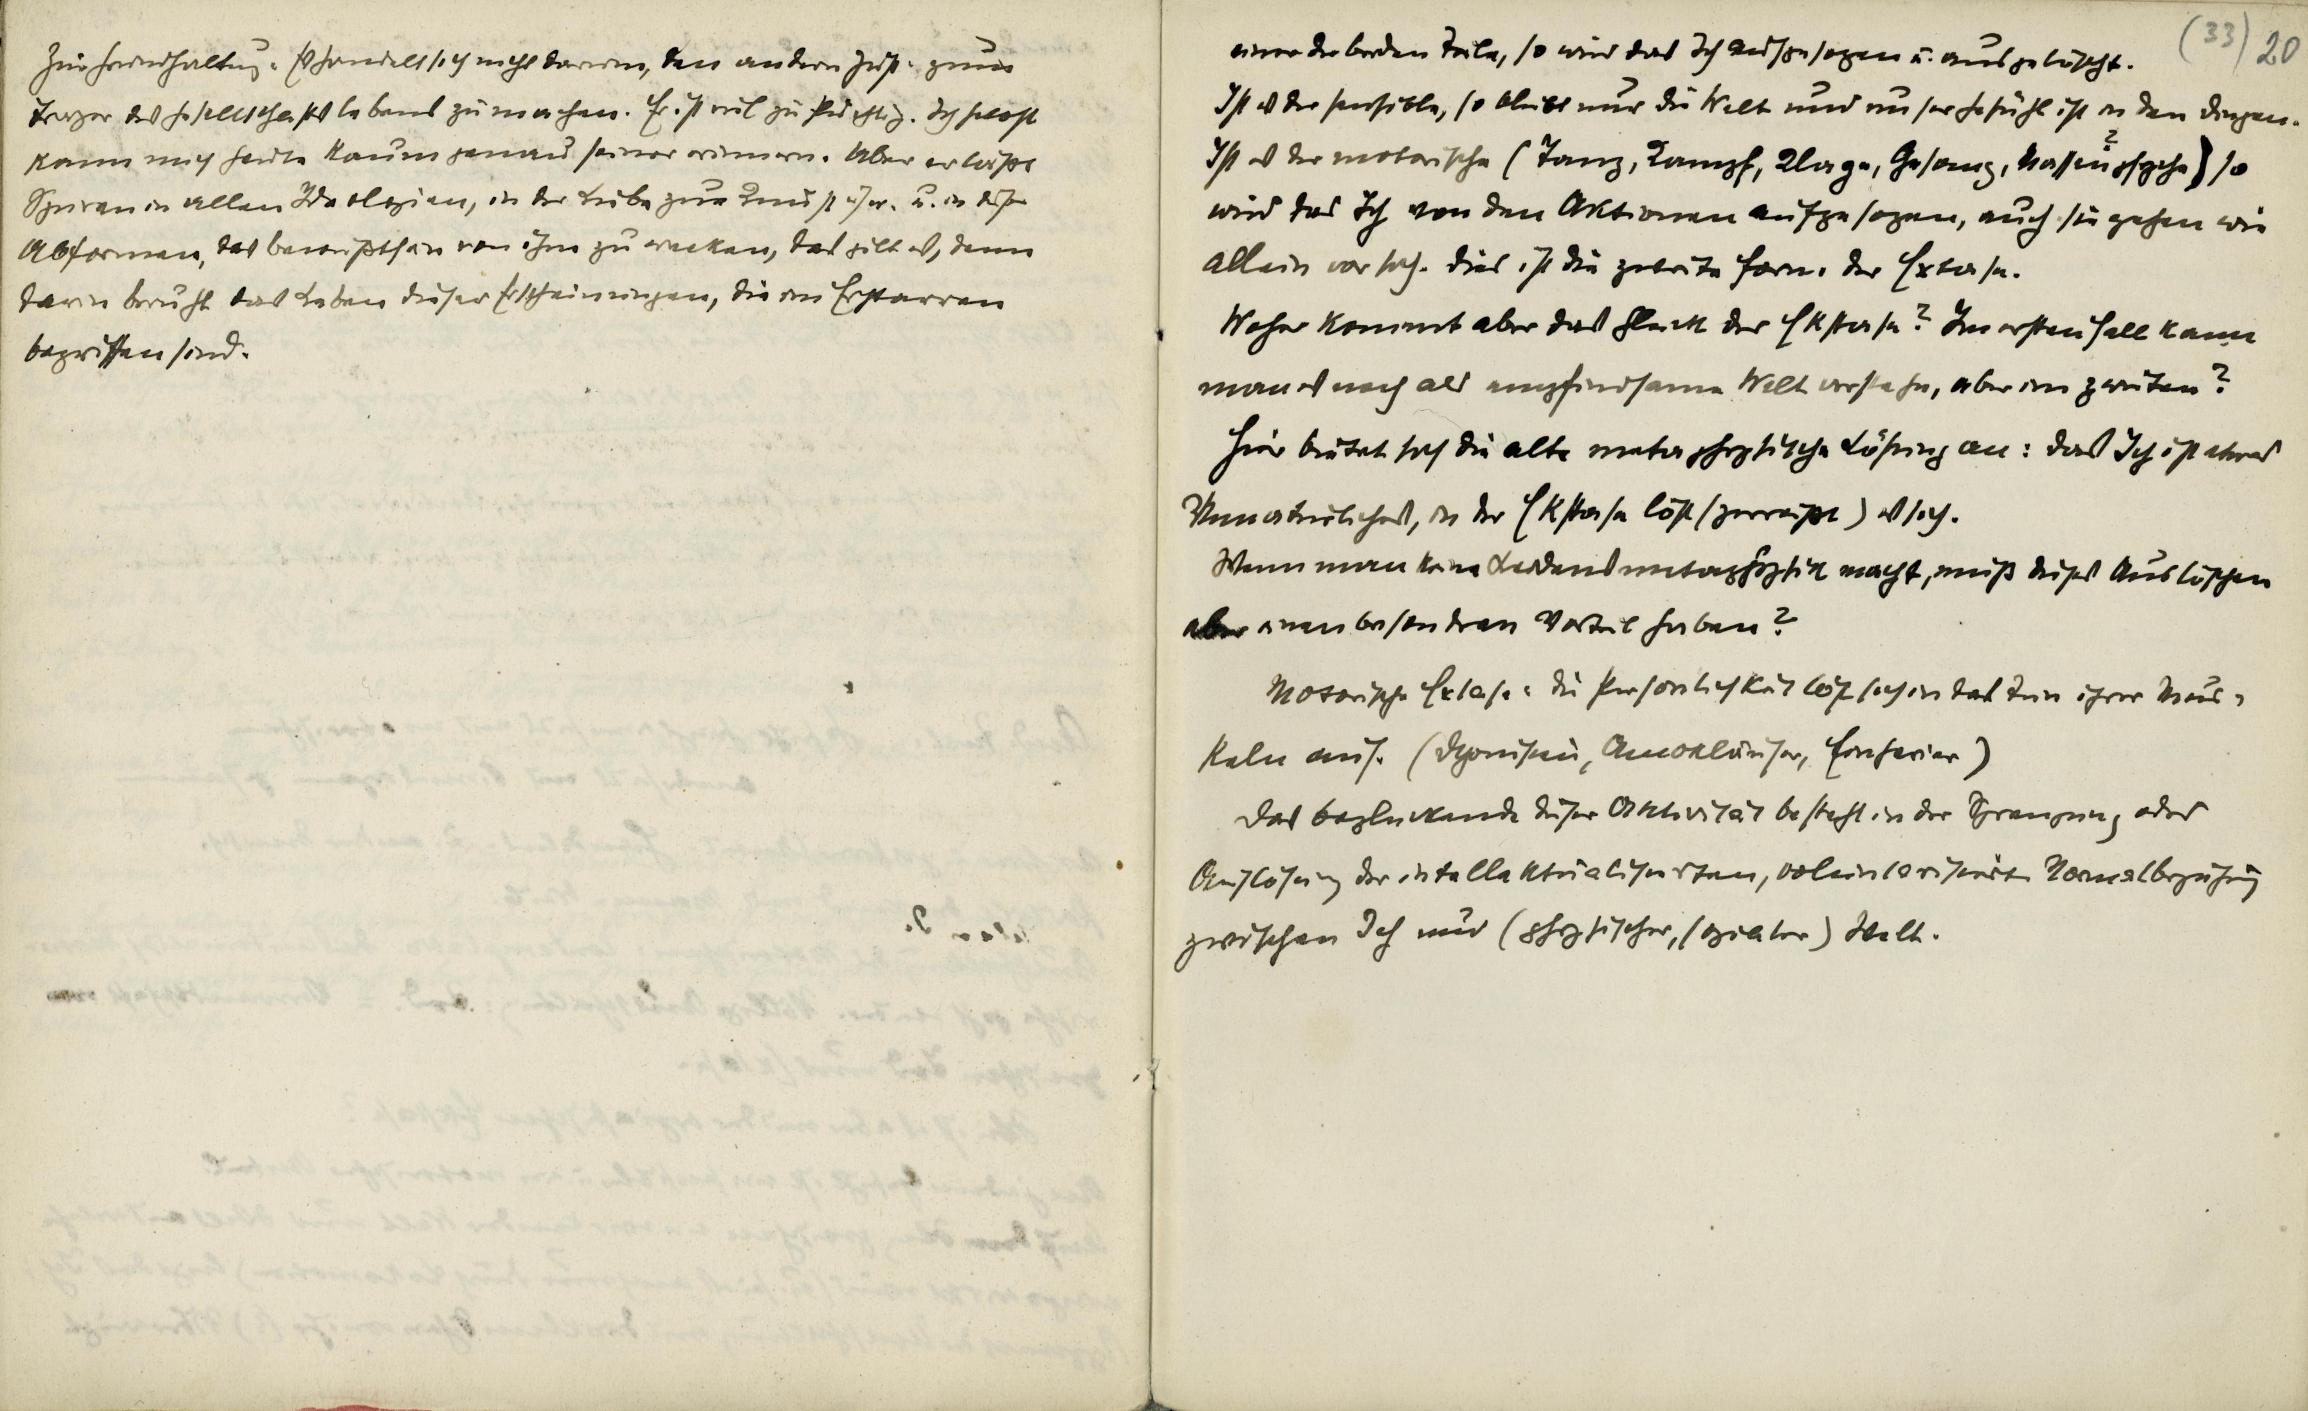 Zurückhaltung. Es handelt sich nicht darum, den andern Zust. zum
Träger des Gesellschaftslebens zu machen. Er ist viel zu flüchtig. Ich selbst
kann mich heute kaum genau seiner erinnern. Aber er läßt
Spuren in allen Ideologien, in der Liebe zur Kunst usw. u. in diesen
Abformen, das Bewußtsein von ihm zu wecken, das gilt es, denn
darin beruht das Leben dieser Erscheinungen, die im Erstarren
begriffen sind.
(33) 20
einer der beiden Teile, so wird das Ich aufgesogen u. ausgelöscht.
Ist es der sensible, so bleibt nur die Welt und unser Gefühl ist in den Dingen.
Ist es der motorische (Tanz, Kampf, Klage, Gesang, Massenpsyche?) so
wird das Ich von den Aktionen aufgesogen, auch sie gehen wie
allein vor sich. Dies ist die zweite Form der Extase.
Woher kommt aber das Glück der Ekstase? Im ersten Fall kann
man es noch als empfindsame Welt verstehn, aber im zweiten?
Hier bietet sich die alte metaphysische Lösung an: das Ich ist etwas
Unnatürliches, in der Ekstase löst (zerreißt) es sich.
Wenn man keine Leidensmetaphysik macht, muß dieses Auslöschen
aber einen besondren Vorteil haben?
Motorische Extase: die Persönlichkeit löst sich in das Tun ihrer Mus-
keln auf. (Dyonisien, Amokläufer,
Das beglückende dieser Aktivität besteht in der Sprengung oder
Auflösung der intellektualisierten, voluntarisierten Normalbeziehung
zwischen Ich und (physischer, sozialer) Welt.